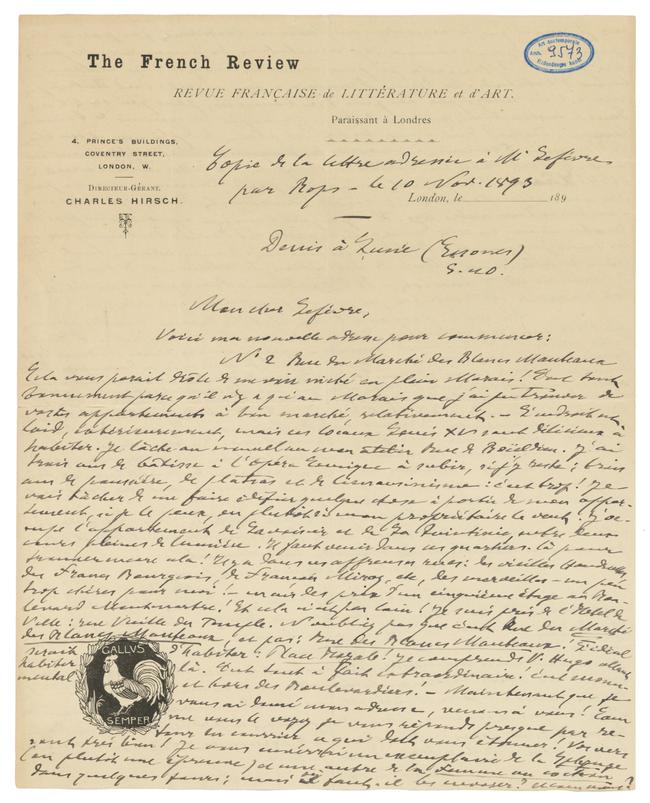 The French Review
Art contemporain
Arch. 9573
Hedendaagse kunst
REVUE FRANÇAISE de LITTÉRATURE et d'ART.
Paraissant à Londres
4, PRINCE'S BUILDINGS,
COVENTRY STREET,
LONDON, W.
DIRECTEUR-GÉRANT,
CHARLES HIRSCH.
Copie de la lettre adressée à Mr Lefèvre
par Rops - le 10 Nov. 1893
London, le 189
Demi à Lune (Essonnes)
S. et O.
Mon cher Lefèvre,
Voici ma nouvelle adresse pour commencer:
No 2 Rue du Marché des Blancs Manteaux
Cela vous parait drôle de me voir niché en plein Marais! Tout
bonnement parce qu'il n'y a qu'au Marais que j'ai pu trouver de
vastes appartements à bon marché, relativement. - L'endroit est
laid, extérieurement, mais ces locaux Louis XV sont délicieux à
habiter. Je lâche au mon atelier Rue de Boïeldieu. J'ai
trois ans de bâtisse à l'Opéra Comique à subir, si j'y reste; trois
ans de poussière, de plâtras et de c'est trop! Je
vais tâcher de me faire édifier quelque chose à portée de mon appar-
tement, si je le peux, ou plutôt si mon propriétaire le veut. J'oc-
cupe l'appartement de Lavoisier et de La Quintinie, entre deux
cours pleines de lumière. Il faut venir dans ces quartiers là pour
trouver encore cela! Il y a dans ces affreuses rues: des vieilles
des Francs Bourgeois, de François Miron, etc, des merveilles - un peu
trop chères pour moi - mais des prix d'un cinquième étage au Bou-
levard Montmartre! Et cela n'est pas loin! Je suis près de l'Hôtel de
Ville: rue Vieille du Temple. N'oubliez pas que c'est Rue du Marché
des Blancs Manteaux et pas: Rue des Blancs Manteaux! L'idéal
serait d'habiter: Place Royale! Je comprends V. Hugo allant
habiter là. C'est tout à fait extraordinaire: c'est monu-
mental et hors des Boulevardiers. - Maintenant que je
vous ai donné mon adresse, venons à vous!
me vous le voyez je vous réponds presque par re-
tour du courrier ce qui doit vous étonner! Vos vers
sont très bien! Je vous enverrai un exemplaire de la
(ou plutôt une épreuve) et une autre de la Femme au cochon
dans quelques jours; mais où faut-il les envoyer?
GALLVS
SEMPER